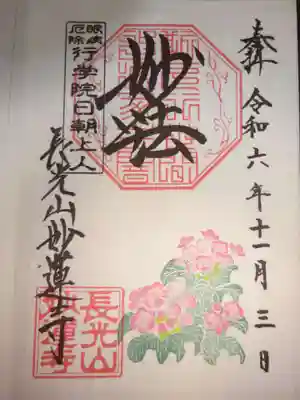 奉拝 令和六年十一月三日
妙法
眼病
厄除
行学院日朝上人
長光山妙蓮寺
長光山
妙蓮寺